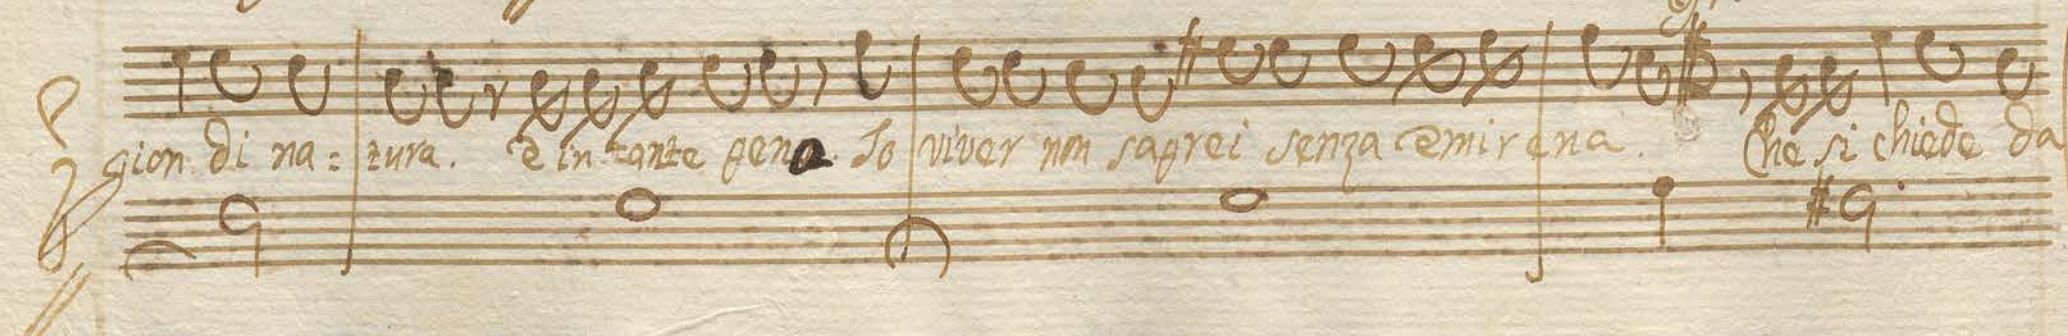 gion di na= tura. è in tante pena. Io viver non saprei senza emirena. Che si chiede da